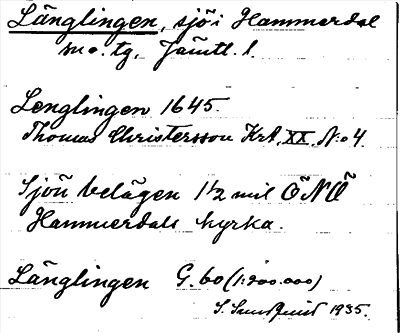 Länglingen, sjö i Hammerdal
s o. tg. Jämtl. l.
Lenglingen 1645.
Thomas Christersson Krt. XX. N:o 4.
Sjön belägen 1½ mil ÖNÖ
Hammerdals kyrka.
Länglingen G. 60 (1:200.000)
S. 1935.